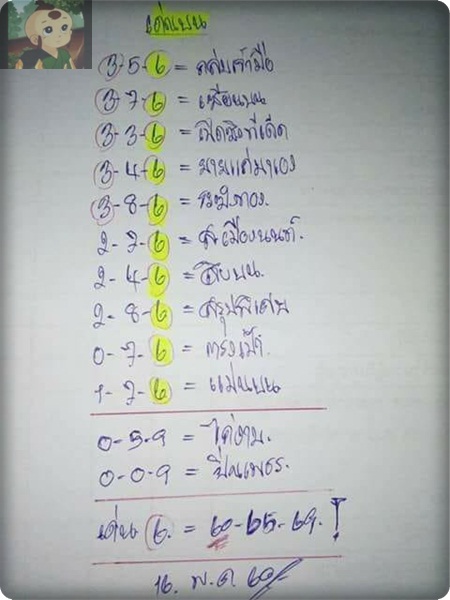 เด่นบน
3-5-6 = กล่มเจ้ามือ
3-7-6 = เซียนบน
3-3-6 = เปิดซิงทีเด็ด
3-4-6 = นายแค่มาเอง
3-8-6 = ระฆังทอง
2-7-6 = ส.เมืองนนท์.
2-4-6 = สิบบน.
2-8-6 = สรุปพิเศษ
0-7-6 = ตรงเป้า.
1-7-6 = แม่นบน
0-5-9 = ไก่งาม.
0-0-9 = ปืนเพชร.
เด่น 6. = 60-65-69. !
16. พ.ค. 60